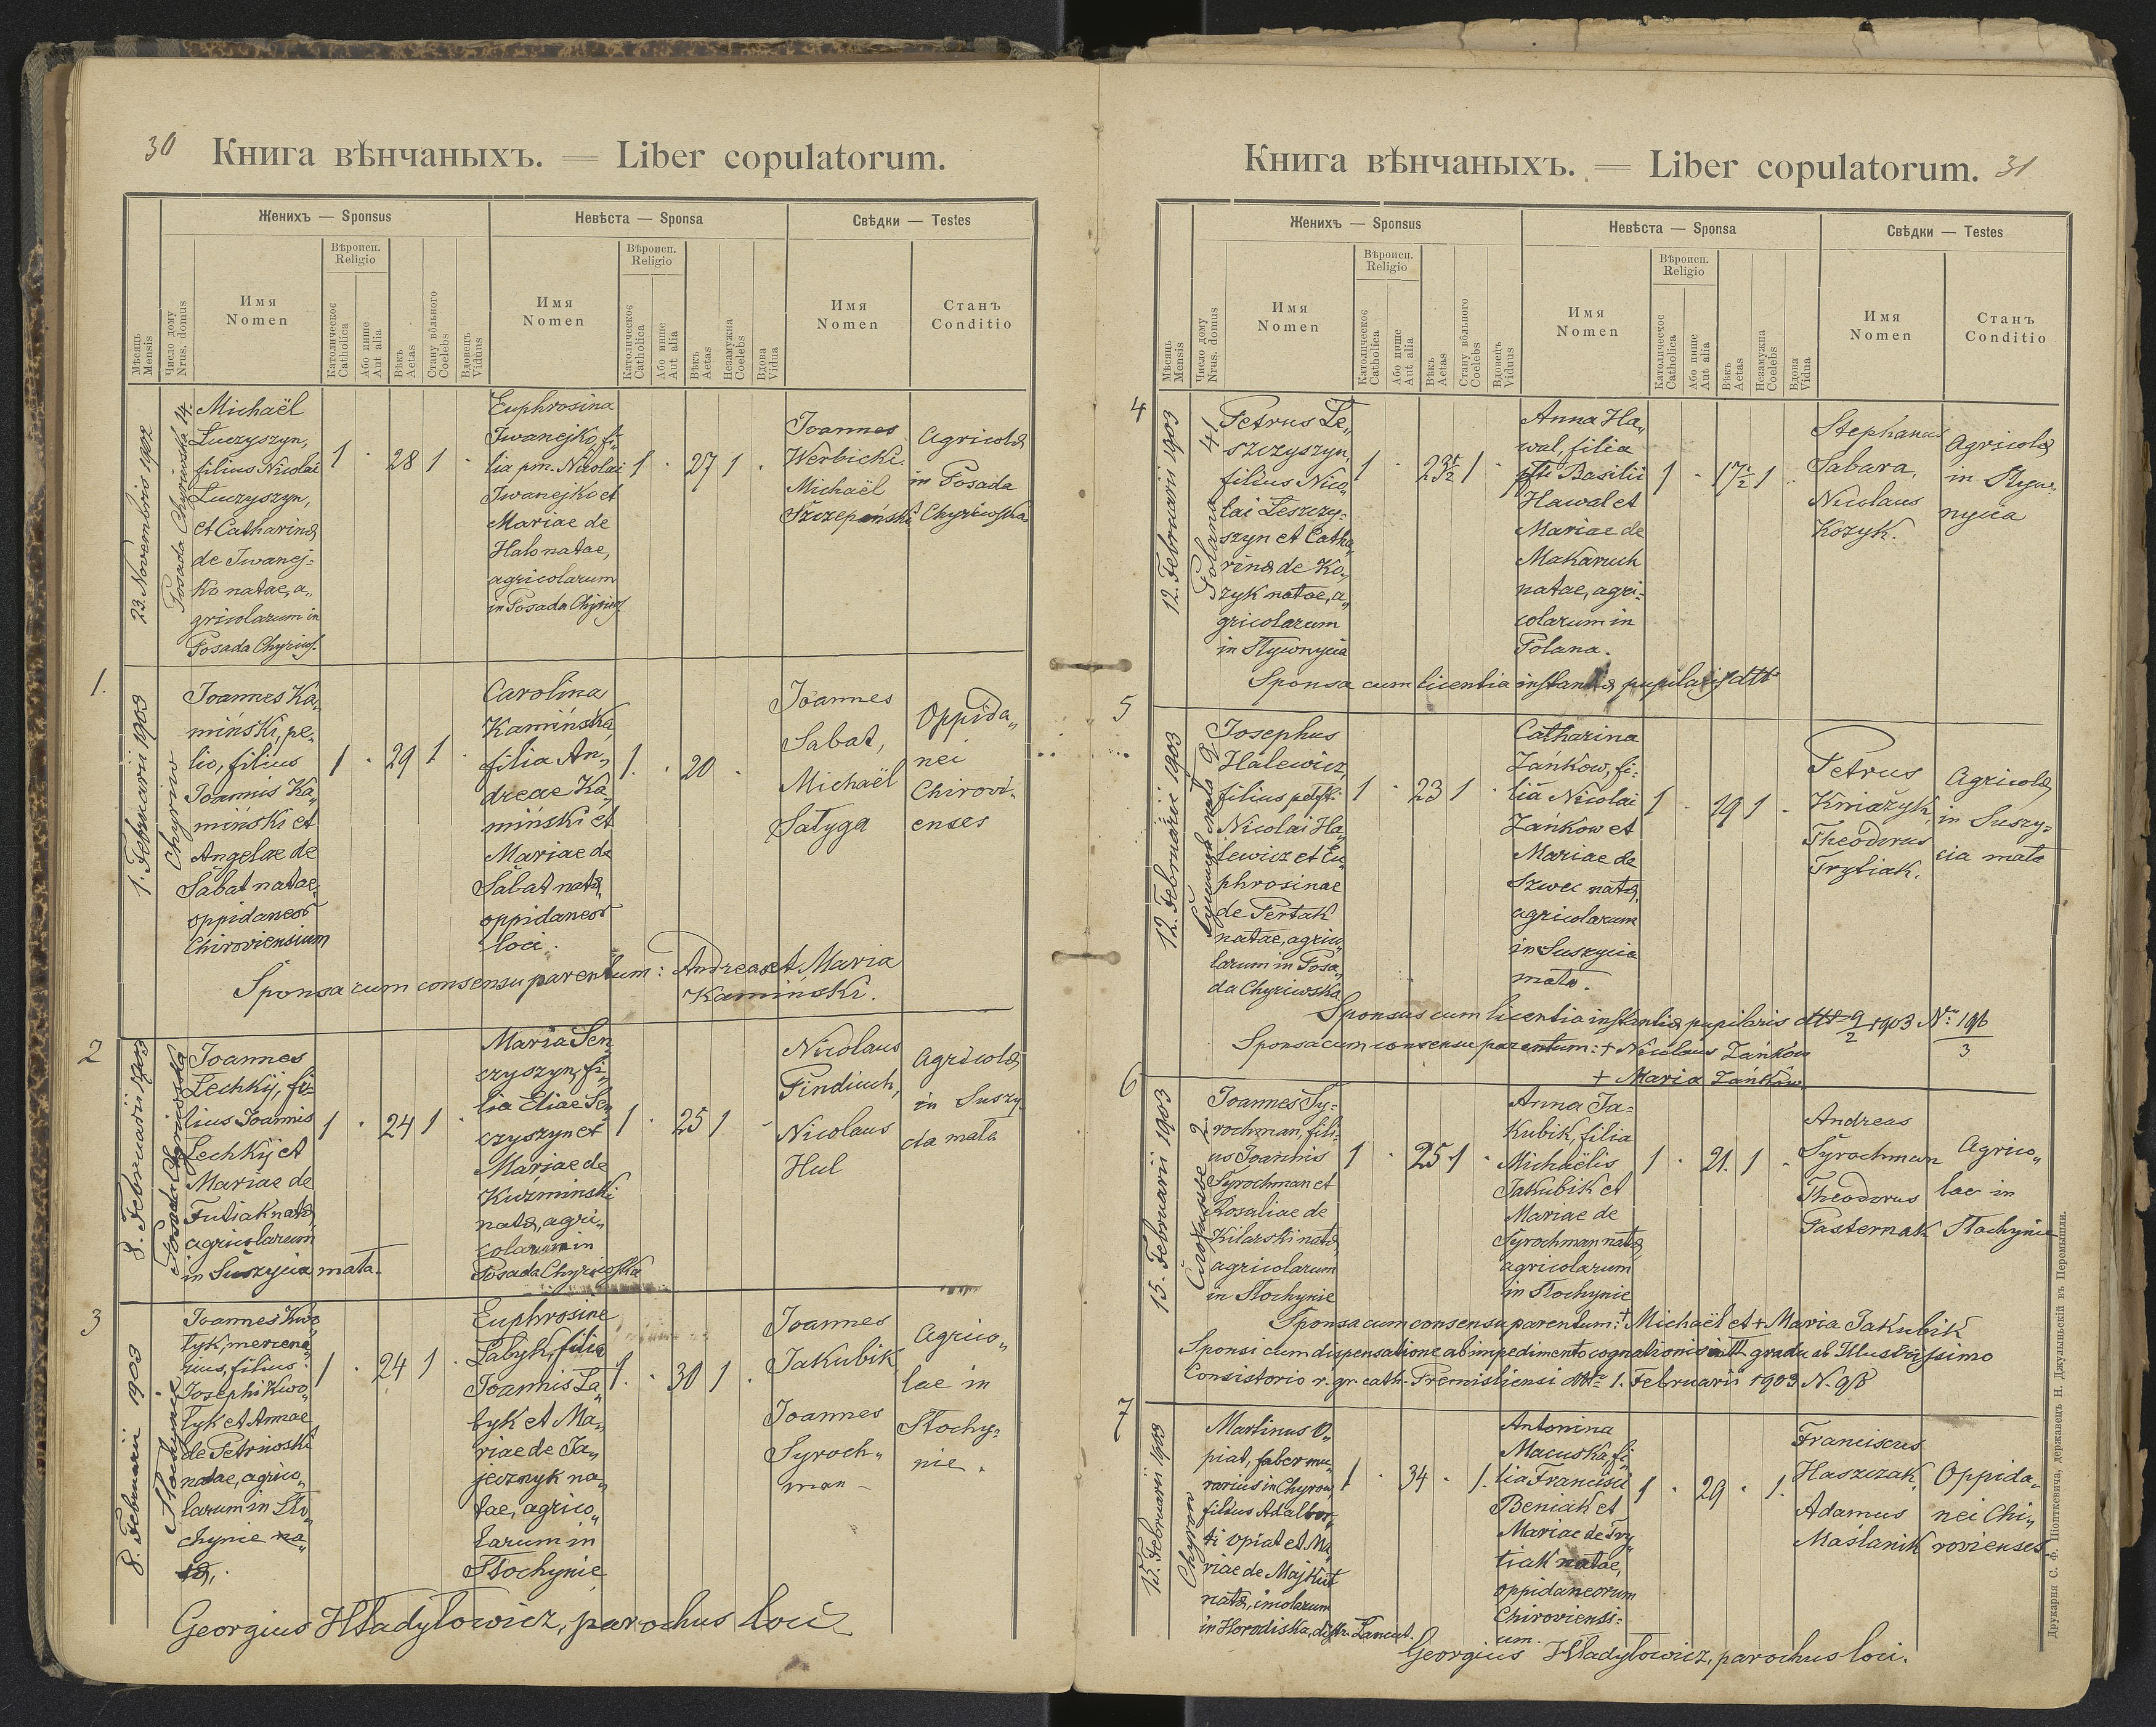 30
Книга вѣнчаныхъ. — Liber copulatorum.
Женихъ — Sponsus
Невѣста — Sponsa
Свѣдки — Testes
Мѣсяць
Mensis
Число дому
Nrus. domus
Имя
Nomen
Вѣроисп.
Religio
Католическое
Catholica
Або инше
Aut alia
Вѣкъ
Aetas
Стану вôльного
Coelebs
Вдовець
Viduus
Имя
Nomen
Вѣроисп.
Religio
Католическое
Catholica
Або инше
Aut alia
Вѣкъ
Aetas
Незамужна
Coelebs
Вдова
Vidua
Имя
Nomen
Станъ
Conditio
23. Novembris 1902
Posada Chyriwska 14.
Michaël
Luczyszyn,
filius Nicolai
Luczyszyn,
et Catharina
de Iwanej-
ko natae, a„
gricolarum in
Posada Chyriws.
1 . 28 1 .
Euphrosina
Iwanejko, fi„
lia pm. Nicolai
Iwanejko et
Mariae de
Halo natae,
agricolarum
in Posada Chyriws.
1 . 27 1 .
Joannes
Werbicki.
Michaël
Szczepański
Agricola
in Posada
Chyriwska
1.
1. Februarii 1903
Chyriw
Joannes Ka„
miński, pe„
lio, filius
Joannis Ka„
miński et
Angelae de
Sabat natae,
oppidaneor
Chiroviensium
1 . 29 1 .
Carolina
Kamińska
filia An„
dreae Ka„
miński et
Mariae de
Sabat nata,
oppidaneor
loci.
1. . 20 .
Joannes
Sabat,
Michaël
Sałyga
Oppida„
nei
Chirovi-
enses
Sponsa cum consensu parentum: Andreas et Maria
Kamiński.
2
8. Februarii 1903
Posada Chyriwska
Joannes
Lechkij, fi-
lius Joannis
Lechkij et
Mariae de
Futiak nata,
agricolarum
in Suszycia mała.
1 . 24 1 .
Maria Sen„
czyszyn, fi„
lia Eliae Sen„
czyszyn et
Mariae de
Kuźminski
nata, agri„
colarum in
Posada Chyriwska
1 . 25 1 .
Nicolaus
Findiuch,
Nicolaus
Hul
Agricola
in Suszy-
cia mała
3
8. Februarii 1903
Słochynie
Joannes Kwo„
tyk, mercena„
rius, filius
Josephi Kwo„
tyk et Annae
de Petrinoski
natae, agrico„
larum in Sło„
chynie na„
ta.
1 . 24 1 .
Euphrosine
Łabyk, filia
Joannis Ła„
byk et Ma„
riae de Ja„
jecznyk na„
tae, agrico„
larum in
Słochynie
1. . 30 1 .
Joannes
Jakubik
Joannes
Syroch„
man
Agrico„
lae in
Słochy-
nie.
Georgius Hładyłowicz, parochus loci
Книга вѣнчаныхъ. — Liber copulatorum.
31
Женихъ — Sponsus
Невѣста — Sponsa
Свѣдки — Testes
Мѣсяць
Mensis
Число дому
Nrus. domus
Имя
Nomen
Вѣроисп.
Religio
Католическое
Catholica
Або инше
Aut alia
Вѣкъ
Aetas
Стану вôльного
Coelebs
Вдовець
Viduus
Имя
Nomen
Вѣроисп.
Religio
Католическое
Catholica
Або инше
Aut alia
Вѣкъ
Aetas
Незамужна
Coelebs
Вдова
Vidua
Имя
Nomen
Станъ
Conditio
4
12. Februaris 1903
Polana 41
Petrus Le„
szczyszyn,
filius Nico„
lai Leszczy-
szyn et Catha„
rina de Ko„
zyk natae, a„
gricolarum
in Sływnycia
1 . 23 1/2 1 .
Anna Ha„
wal, filia
pfti Basilii
Hawal et
Mariae de
Makaruch
natae, agri-
colarum in
Polana.
1 . 17 1/2 1 .
Stephanus
Sabara,
Nicolaus
Kozyk.
Agricola
in Sływ-
nycia
Sponsa cum licentia instantia pupilaris dtt
5
12. Februarii 1903
Josephus
Halewicz,
filius pdefti
Nicolai Ha„
lewicz et Eu„
phrosinae
de Pertak
natae, agrico„
larum in Posa„
da Chyriwska
1 . 23 1 .
Catharina
Zańków, fi-
lia Nicolai
Zańkow et
Mariae de
Szwec nata,
agricolarum
in Suszycia
mała.
1 . 19 1 .
Petrus
Kniażyk,
Theodorus
Frytiak.
Agricola
in Suszy-
cia mała
Sponsus cum licentia instantia pupilaris dtt 9/2 1903 Nr. 196/3
Sponsa cum consensu parentum: + Nicolaus Zańkow
+ Maria Zańków
6
15. Februarii 1903
Joannes Sy-
rochman, fili-
us Joannis
Syrochman et
Rosaliae de
Kilarski nata,
agricolarum
in Słochynie
1 . 25 1 .
Anna Ja-
kubik, filia
Michaëlis
Jakubik et
Mariae de
Syrochman nata,
agricolarum
in Słochynie
1 . 21. 1 .
Andreas
Syrochman
Theodorus
Pasternak
Agrico„
lae in
Słochynie
Sponsa cum consensu parentum: + Michaël et + Maria Jakubik
Sponsi cum dispensatione ab impedimento cognationis in III gradu ab Illustrissimo
Consistorio r. gr. cath. Premisliensi dtto 1. Februarii 1903 N. 98
7
15. Februarii 1903
Chyrow
Martinus O„
piat, faber mu„
rarius in Chyrow
filius Adalber„
ti Opiat et Ma„
riae de Majkut
nata, incolarum
in Horodiska, distr. Łancut.
1 . 34 . 1.
Antonina
Macuska, fi„
lia Francisci
Beniak et
Mariae de Fry„
tiak natae,
oppidaneorum
Chiroviensi-
um.
1 . 29 . 1.
Franciscus
Haszczak,
Adamus
Maślanik
Oppida„
nei Chi„
rovienses.
Georgius Hładyłowicz, parochus loci.
Друкарня С. Ф. Піонткевича, державець Н. Джулыньскій въ Перемышли.